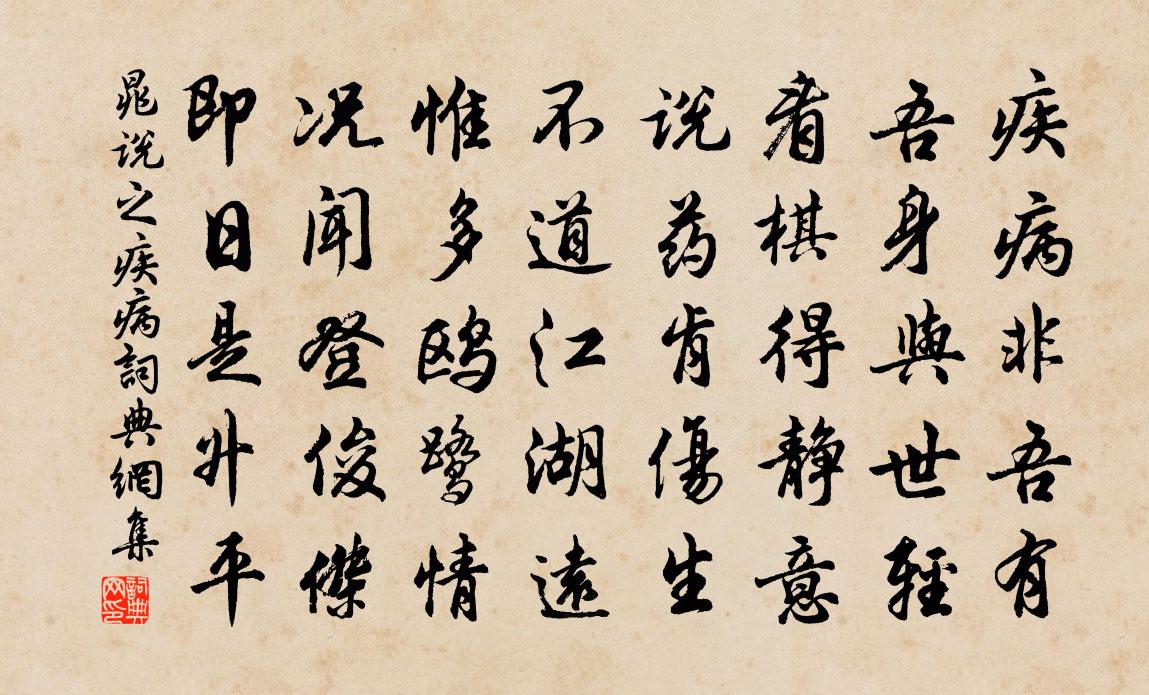 疾病非吾有
吾身與世輕
看棋得静意
说药肯傷生
不道江湖遠
惟多鸥鹭情
况闻登俊傑
即日是升平
晁说之疾病詞典網集
詞典网印